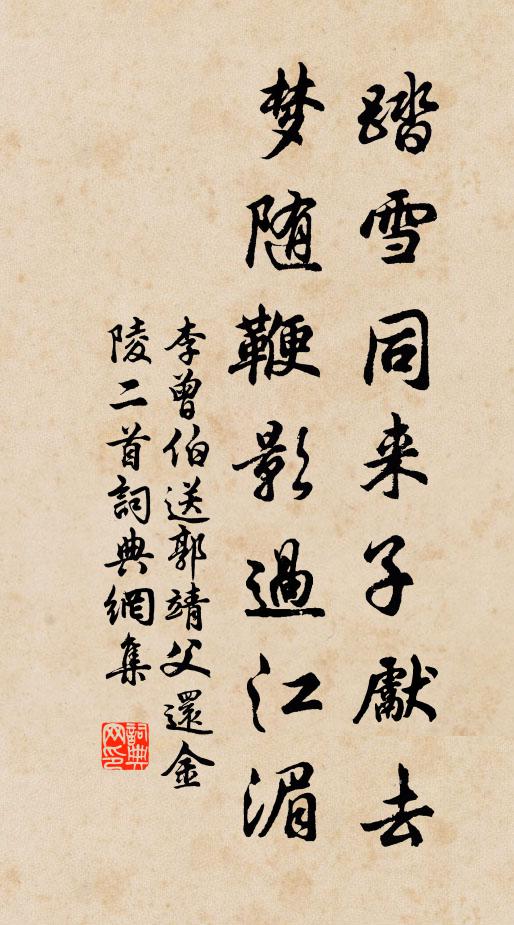 踏雪同来子獻去
梦随鞭影過江湄
李曾伯送郭靖父還金
陵二首詞典網集
詞典网印